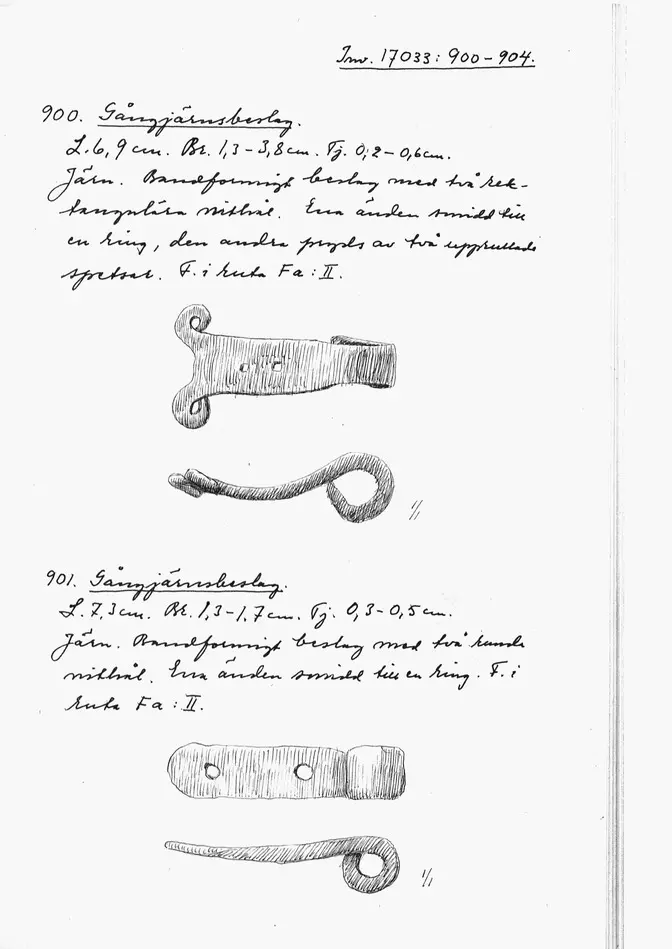 Inv. 17033: 900–904.
900. Gångjärnsbeslag.
L. 6,9 cm. Br. 1,3–3,8 cm. Tj. 0,2–0,6 cm.
Järn. Bandformigt beslag med två rek-
tangulära nithål. Ena änden smidd till
en ring, den andra pryds av två upprullade
spetsar. F. i ruta Fa: II.
1/1
901. Gångjärnsbeslag.
L. 7,3 cm. Br. 1,3–1,7 cm. Tj. 0,3–0,5 cm.
Järn. Bandformigt beslag med två runda
nithål. Ena änden smidd till en ring. F. i
ruta Fa: II.
1/1